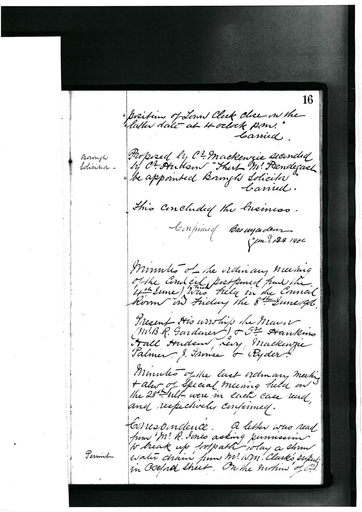 16
position of Town Clerk close on the
latter date at 4 oclock p.m."
Carried.
Borough
Solicitor
Proposed by Cr. Mackenzie seconded
by Cr. "That Mr.
be appointed Borough Solicitor"
Carried.
This concluded the business.
Confirmed
Minutes of the ordinary meeting
of the Council postponed from the
June) was held in the Council
Room on Friday the 8th June
Present His worship the Mayor
(Mr B. R. Gardener) & Crs Hankins
Hall Levy, Mackenzie
Palmer, J. & Ryder.
Minutes of the last ordinary meeting
& also of Special meeting held on
the 28th ult were in each case read,
and respectively confirmed.
Correspondence. A letter was read
Permit
from Mr. R. Jones asking permission
to break up footpath to lay a storm
water drain from Mr. Wm. Clark's
in Oxford Street. On the motion of Cr.